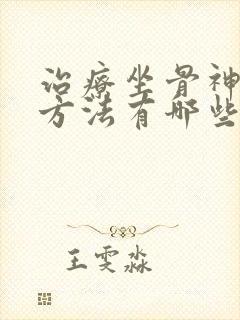 治療坐骨神
方法有哪些
王雯淼